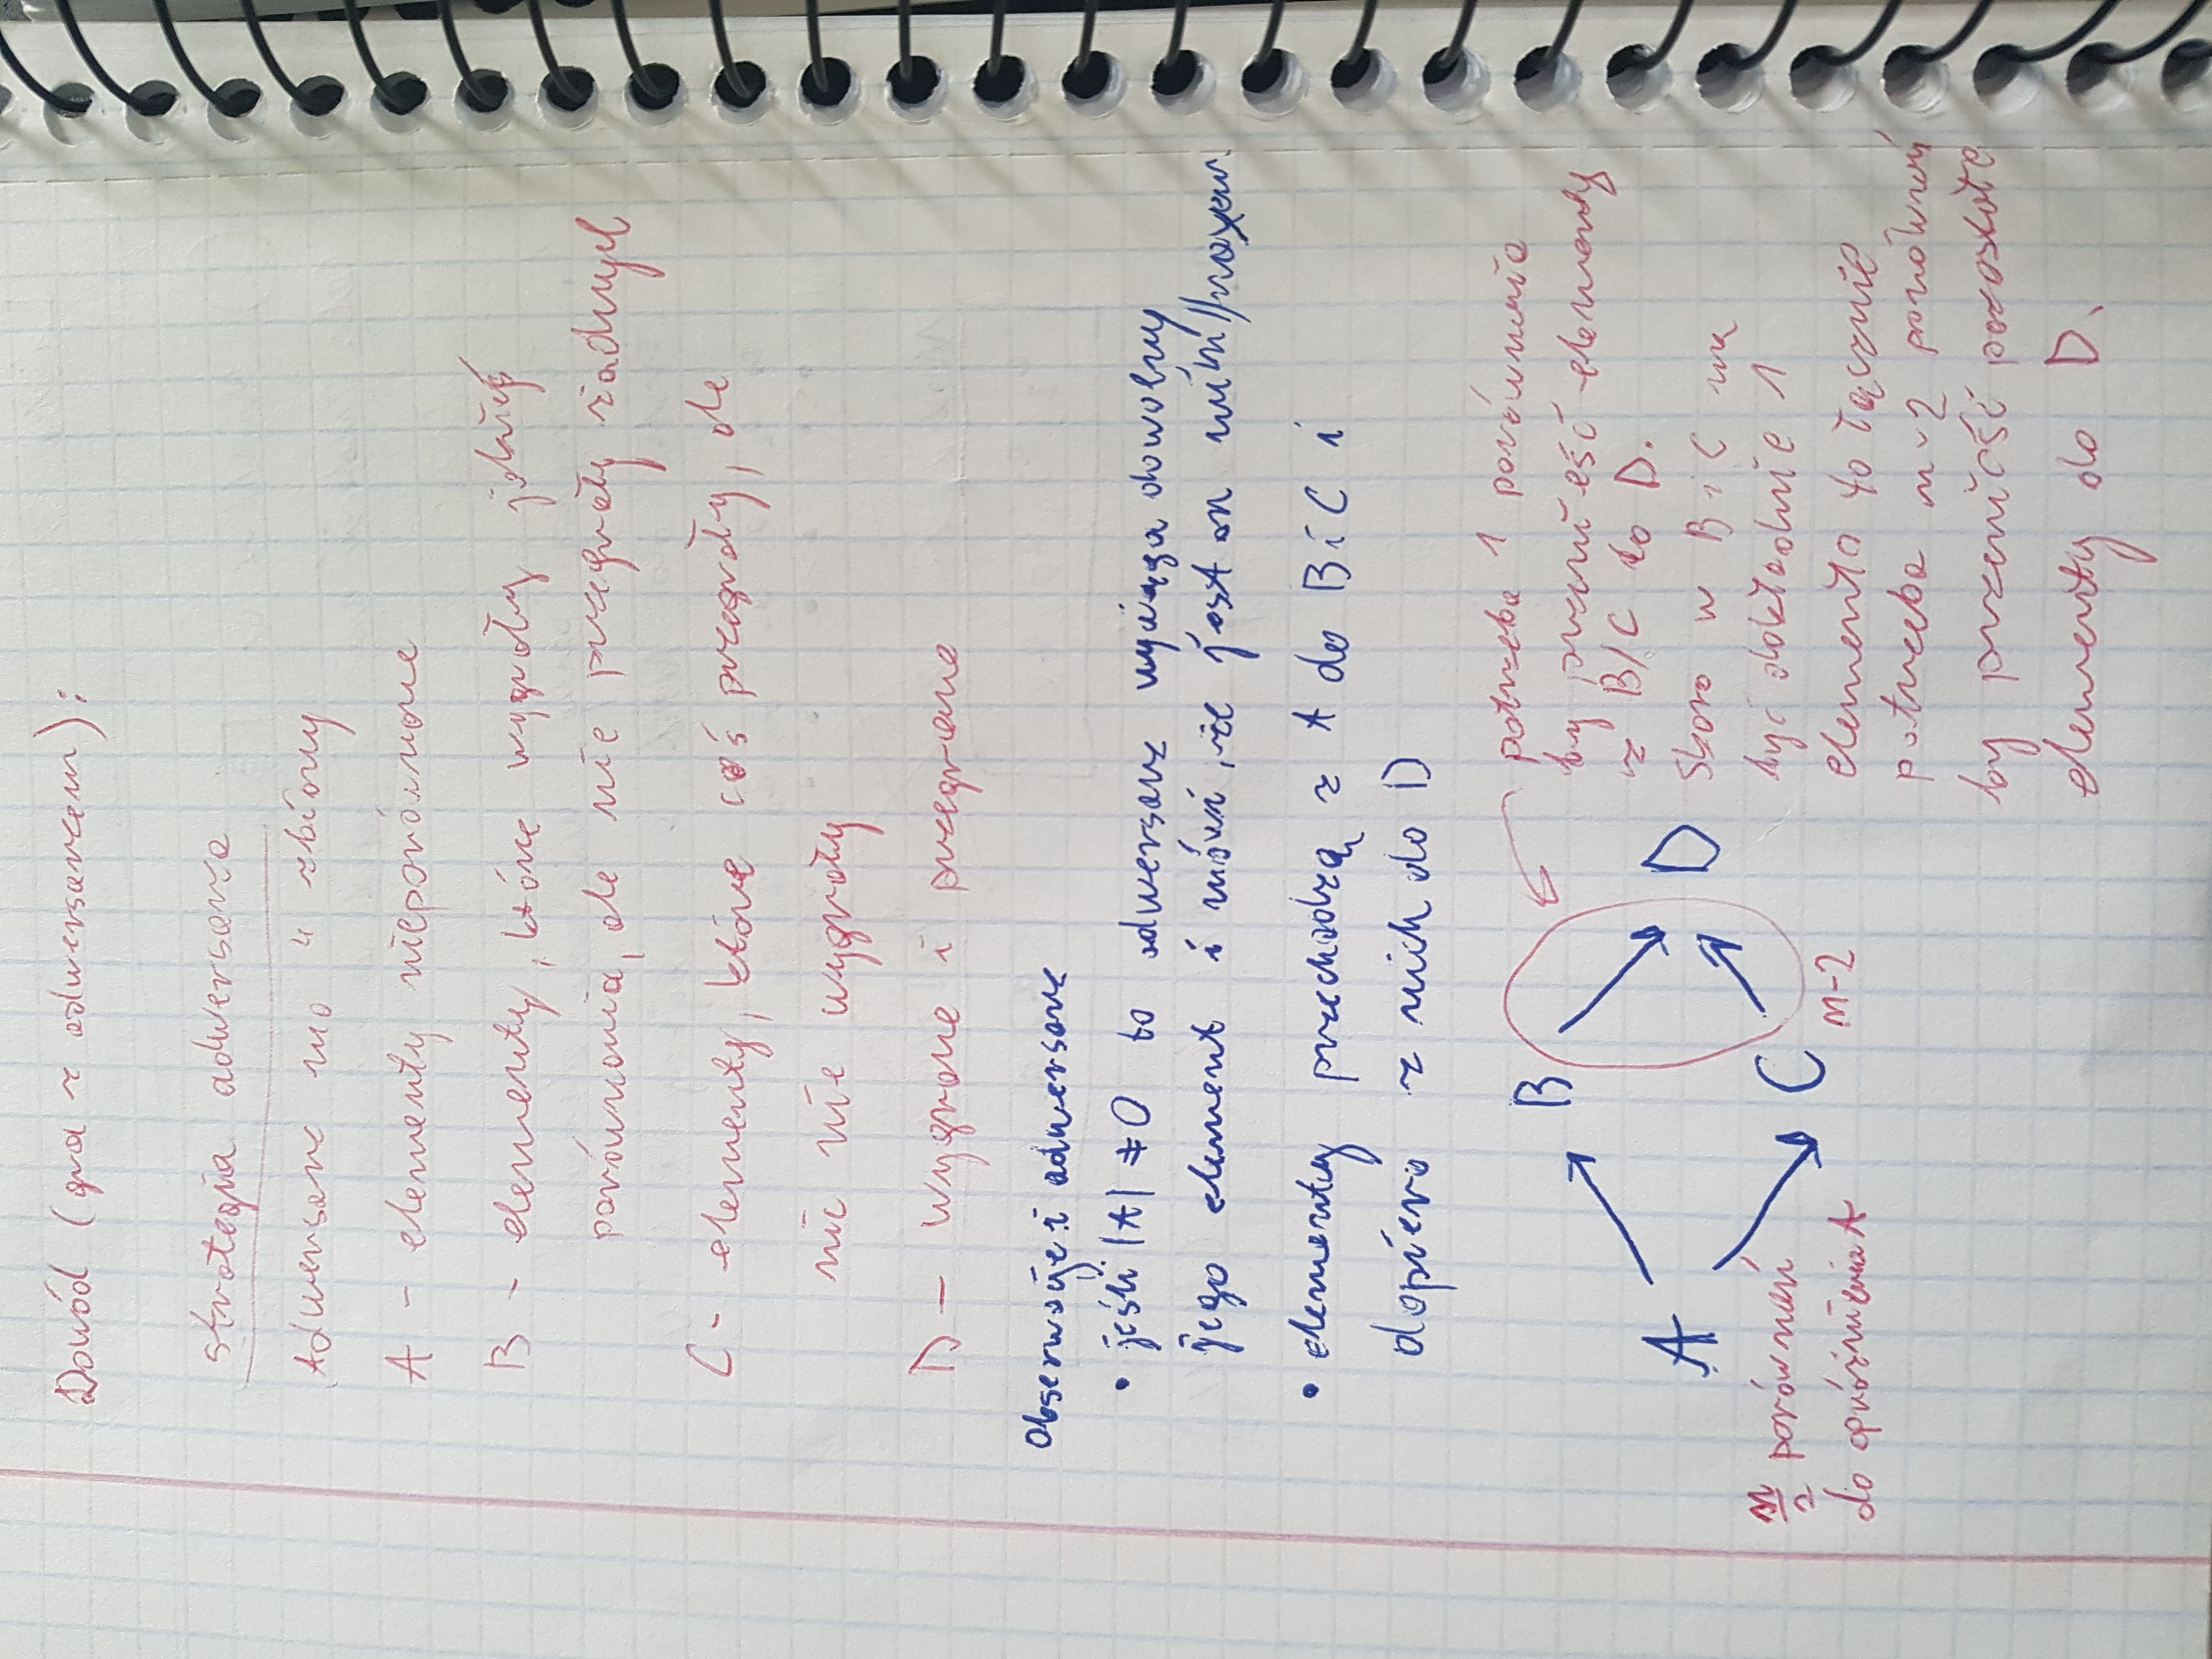 Dowód (gra z adwersarzem):
strategia adwersarza
Adwersarz ma 4 zbiory
A - elementy nieporównane
B - elementy, które wygrały jakieś
porównania, ale nie przegrały żadnych
C - elementy, które coś przegrały, ale
nic nie wygrały
D - wygrane i przegrane
Obserwacje: adwersarz
• jeśli |A| ≠ 0 to adwersarz wyciąga dowolny
jego element i mówi, że jest on min//maxem.
• elementy przechodzą z A do B i C i
dopiero z nich do D
potrzeba 1 porównania
by przenieść elementy
z B/C do D.
Skoro w B i C ma
być dokładnie 1
elementa to łącznie
potrzeba n-2 porównań
by przenieść pozostałe
elementy do D.
B
A
D
C
n/2 porównań
do opróżnienia A
n-2